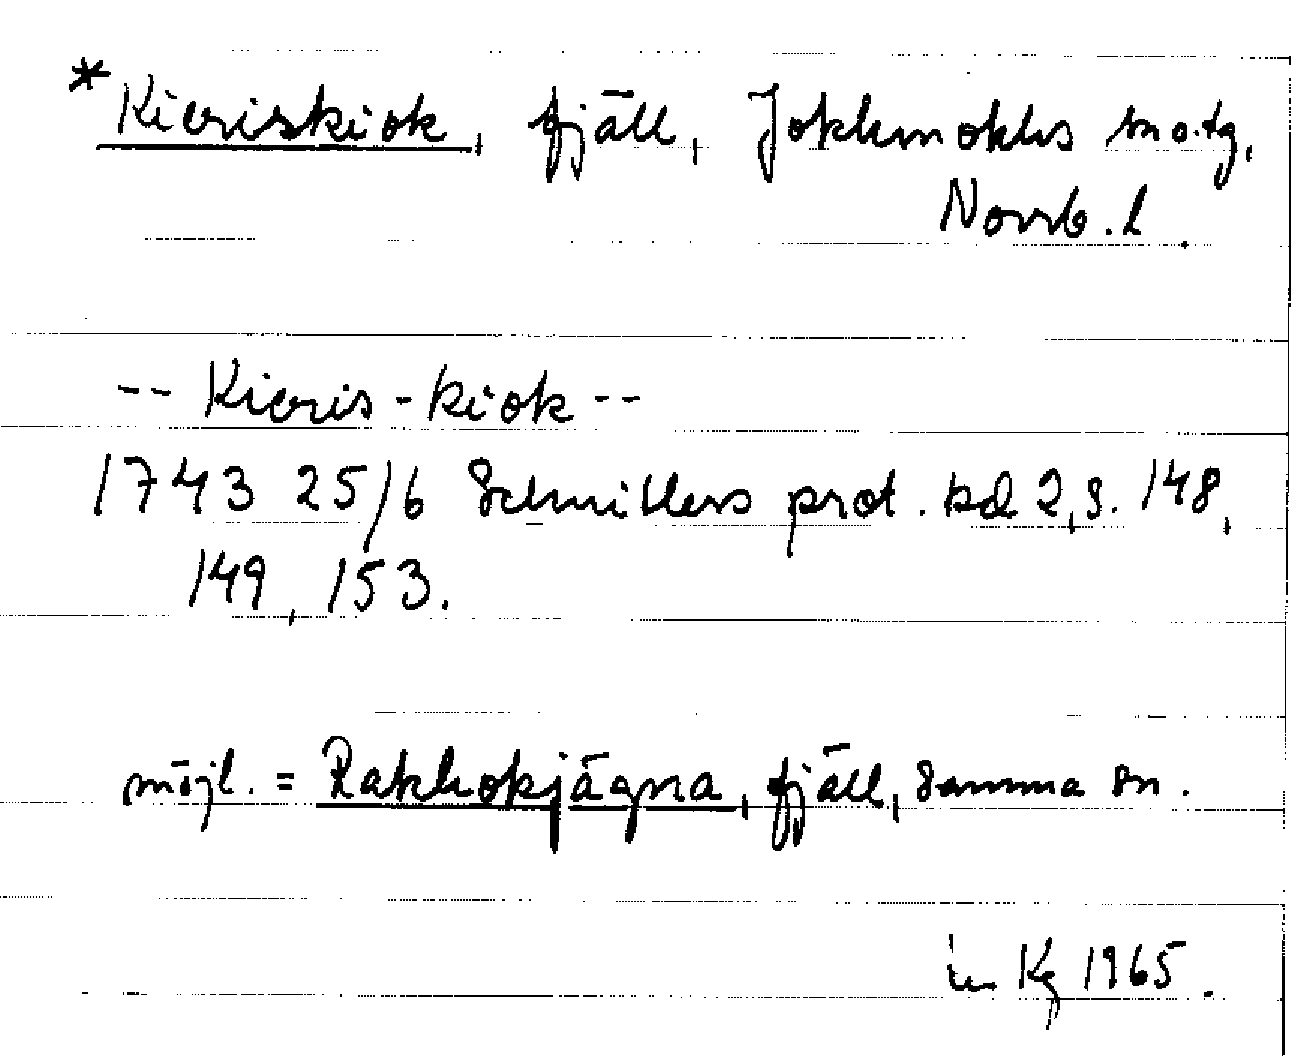 *Kieriskiok, fjäll, Jokkmokks sn o. tg,
Norrb. l.
-- Kieris-kiok --
1743 25/6 Schnitlers prot. bd 2, s. 148,
149, 153.
möjl. = Rakkokjägna, fjäll, samma sn.
Kg 1965.